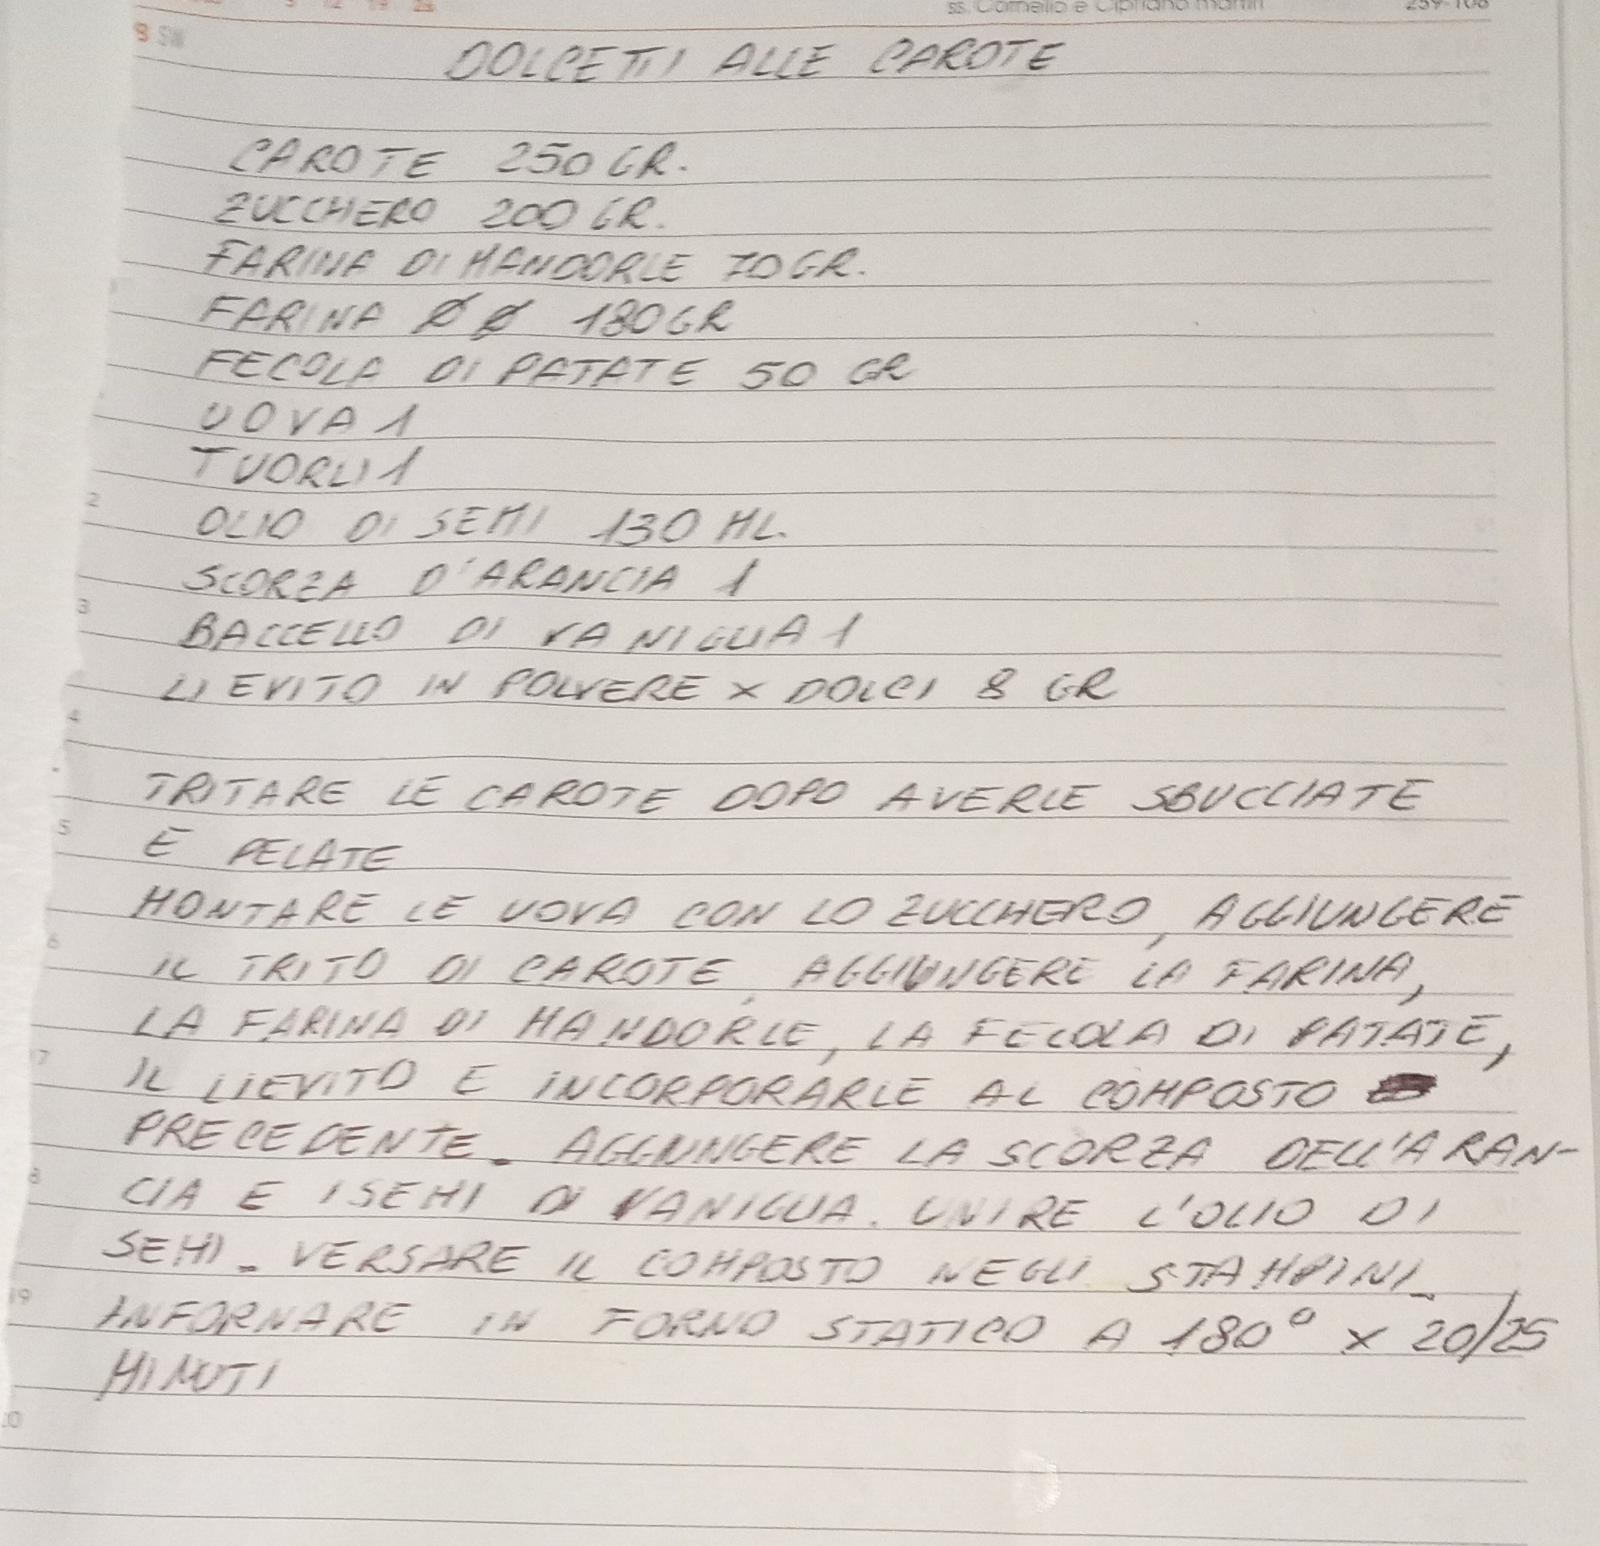 5 12 19 26
ss. Cornelio e Cipriano martiri 259-106
S SW
DOLCETTI ALLE CAROTE
CAROTE 250 GR.
ZUCCHERO 200 GR.
FARINA DI MANDORLE 70 GR.
FARINA 00 180 GR
FECOLA DI PATATE 50 GR
UOVA 1
TUORLI 1
OLIO DI SEMI 130 ML.
SCORZA D'ARANCIA 1
BACCELLO DI VANIGLIA 1
LIEVITO IN POLVERE x DOLCI 8 GR
TRITARE LE CAROTE DOPO AVERLE SBUCCIATE
E PELATE
MONTARE LE UOVA CON LO ZUCCHERO, AGGIUNGERE
IL TRITO DI CAROTE, AGGIUNGERE LA FARINA,
LA FARINA DI MANDORLE, LA FECOLA DI PATATE,
IL LIEVITO E INCORPORARLE AL COMPOSTO
PRECEDENTE. AGGIUNGERE LA SCORZA DELL'ARAN-
CIA E I SEMI DI VANIGLIA. UNIRE L'OLIO DI
SEMI. VERSARE IL COMPOSTO NEGLI STAMPINI.
INFORNARE IN FORNO STATICO A 180° x 20/25
MINUTI